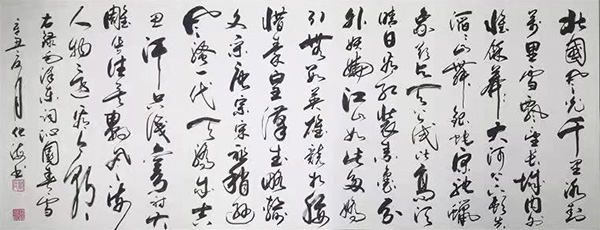 北國風光千里冰封
萬里雪飄望長城内外
惟餘莽莽大河上下頓失
滔滔山舞銀蛇原馳蠟
象欲與天公試比高須
晴日看紅裝素裹分
外妖嬈江山如此多嬌
引無數英雄競折腰
惜秦皇漢武略輸
文采唐宗宋祖稍遜
風騷一代天驕成吉
思汗只識彎弓射大
雕俱往矣數風流
人物還看今朝
右錄毛澤東詞沁園春雪
辛丑 月 海書